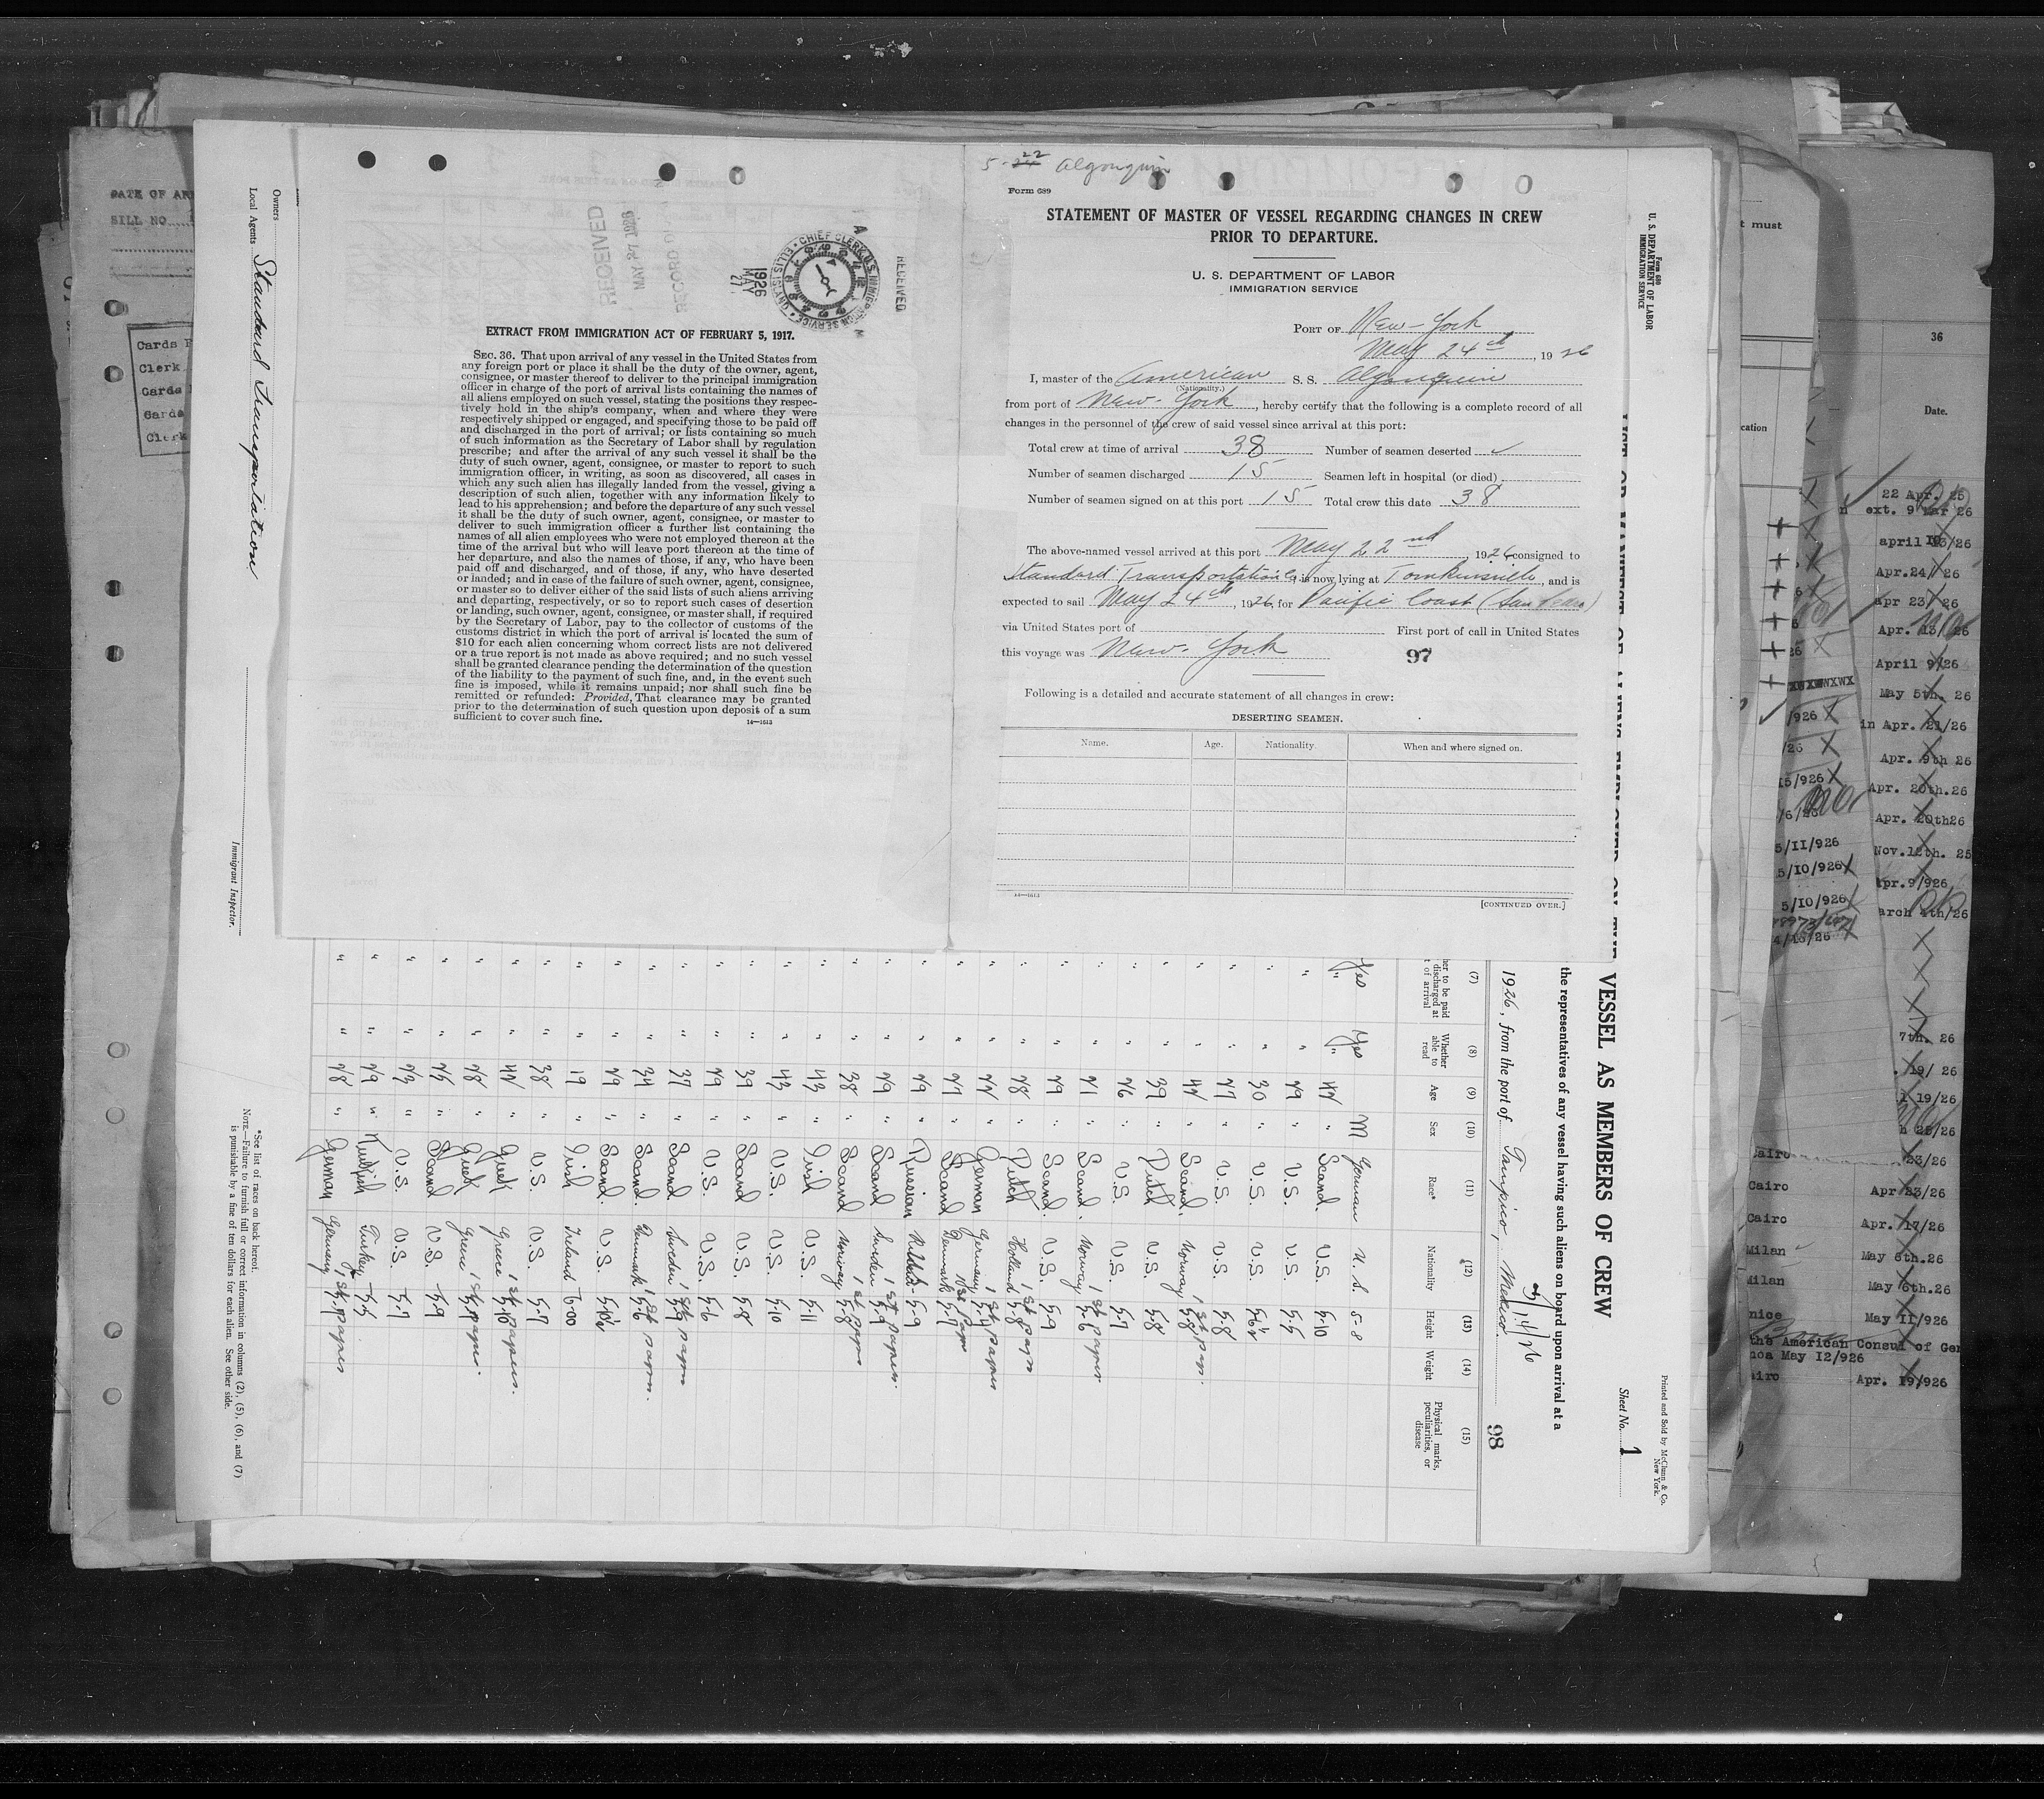 5-22 Algonquin
Form 689
STATEMENT OF MASTER OF VESSEL REGARDING CHANGES IN CREW
PRIOR TO DEPARTURE.
U. S. DEPARTMENT OF LABOR
IMMIGRATION SERVICE
PORT OF New-York
May 24th, 1926
I, master of the American S. S. Algonquin
(Nationality.)
from port of New-York, hereby certify that the following is a complete record of all
changes in the personnel of the crew of said vessel since arrival at this port:
Total crew at time of arrival 38 Number of seamen deserted
Number of seamen discharged 15 Seamen left in hospital (or died)
Number of seamen signed on at this port 15 Total crew this date 38
The above-named vessel arrived at this port May 22nd, 1926 consigned to
Standard Transportation Co, is now lying at Tomkinsville, and is
expected to sail May 24th, 1926, for Pacific Coast (San Pedro)
via United States port of First port of call in United States
this voyage was New-York
97
Following is a detailed and accurate statement of all changes in crew:
DESERTING SEAMEN.
Name. Age. Nationality. When and where signed on.
14—1613
[CONTINUED OVER.]
RECEIVED
MAY 27 1926
RECORD DI
1926
MAY
27
CHIEF CLERK, U.S. IMMIGRATION SERVICE
ELLIS ISL
RECEIVED
EXTRACT FROM IMMIGRATION ACT OF FEBRUARY 5, 1917.
SEC. 36. That upon arrival of any vessel in the United States from
any foreign port or place it shall be the duty of the owner, agent,
consignee, or master thereof to deliver to the principal immigration
officer in charge of the port of arrival lists containing the names of
all aliens employed on such vessel, stating the positions they respec-
tively hold in the ship's company, when and where they were
respectively shipped or engaged, and specifying those to be paid off
and discharged in the port of arrival; or lists containing so much
of such information as the Secretary of Labor shall by regulation
prescribe; and after the arrival of any such vessel it shall be the
duty of such owner, agent, consignee, or master to report to such
immigration officer, in writing, as soon as discovered, all cases in
which any such alien has illegally landed from the vessel, giving a
description of such alien, together with any information likely to
lead to his apprehension; and before the departure of any such vessel
it shall be the duty of such owner, agent, consignee, or master to
deliver to such immigration officer a further list containing the
names of all alien employees who were not employed thereon at the
time of the arrival but who will leave port thereon at the time of
her departure, and also the names of those, if any, who have been
paid off and discharged, and of those, if any, who have deserted
or landed; and in case of the failure of such owner, agent, consignee,
or master so to deliver either of the said lists of such aliens arriving
and departing, respectively, or so to report such cases of desertion
or landing, such owner, agent, consignee, or master, shall, if required
by the Secretary of Labor, pay to the collector of customs of the
customs district in which the port of arrival is located the sum of
$10 for each alien concerning whom correct lists are not delivered
or a true report is not made as above required; and no such vessel
shall be granted clearance pending the determination of the question
of the liability to the payment of such fine, and, in the event such
fine is imposed, while it remains unpaid; nor shall such fine be
remitted or refunded: Provided, That clearance may be granted
prior to the determination of such question upon deposit of a sum
sufficient to cover such fine.
14—1613
Form 680
U. S. DEPARTMENT OF LABOR
IMMIGRATION SERVICE
Printed and Sold by McClunn & Co.
New York.
Sheet No. 1
VESSEL AS MEMBERS OF CREW
the representatives of any vessel having such aliens on board upon arrival at a
1926, from the port of Tampico, Mexico.
98
(7) (8) (9) (10) (11) (12) (13) (14) (15)
her to be paid discharged at t of arrival
Whether able to read
Age
Sex
Race*
Nationality
Height
Weight
Physical marks, peculiarities, or disease
Yes Yes M German U. S. 5-8
" " 42 " Scand. U.S. 5-10
" " 29 " U.S. U.S. 5-5
" " 30 " U.S. U.S. 5-6½
" " 27 " U.S. U.S. 5-8
" " 42 " Scand. Norway 5-8 1st papr.
" " 39 " Dutch U.S. 5-8
" " 26 " U.S. U.S. 5-7
" " 21 " Scand. Norway 5-6 1st paper
" " 29 " Scand. U.S. 5-9
" " 28 " Dutch Holland 5-8 1st papr
" " 22 " German Germany 1st papers
" " 27 " Scand Denmark 5-7 1st papr
" " 29 " Russian 5-9
" " 29 " Scand Sweden 5-9 1st papers.
" " 38 " Scand Norway 5-8 1st papr
" " 43 " Irish U.S. 5-11
" " 43 " U.S. U.S. 5-10
" " 39 " Scand U.S. 5-8
" " 29 " U.S. U.S. 5-6
" " 37 " Scand Sweden 5-9 1st papr
" " 34 " Scand. Denmark 5-6 1st papr.
" " 29 " Scand. U.S.
" " 19 " Irish Ireland 6-00
" " 38 " U.S. U.S. 5-7
" " 42 " Greek Greece 5-10 1st papers.
" " 28 " Greek Greece 1st paper.
" " 25 " Scand U.S. 5-9
" " 23 " U.S. U.S. 5-7
" " 29 " Turkish Turkey 5-5
" " 28 " German Germany 5-7 1st papers
*See list of races on back hereof.
NOTE.—Failure to furnish full or correct information in columns (2), (5), (6), and (7)
is punishable by a fine of ten dollars for each alien. See other side.
Owners
Local Agents Standard Transportation
Immigrant Inspector.
DATE OF AR
BILL NO
Cards
Clerk
Cards
Cards
Clerk
t must
cation
36
Date.
22 Apr. 25
ext. 9 Mar 26
april 13/26
Apr.24/ 26
apr 23/ 26
Apr. 13/ 26
April 9/26
May 5th. 26
in Apr. 21/26
Apr. 9th 26
Apr. 20th.26
Apr. 20th26
Nov.12th. 25
Apr.9/926
arch 4th/26
/926
/26
15/926
/6/26
5/11/926
5/10/926
5/10/926
4/15/26
7th. 26
19/ 26
19/26
23/26
Cairo
Cairo Apr 23/26
Cairo Apr. 17/26
Milan May 6th.26
Milan May 6th.26
nice May 11/926
the American Consul of Gen
noa May 12/926
airo Apr. 19/926